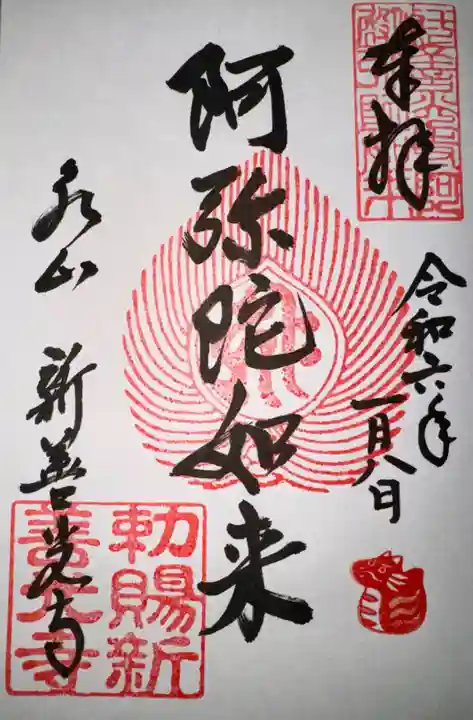 奉拝
令和六年
一月八日
阿弥陀如来
新善光寺
勅賜新
善光寺